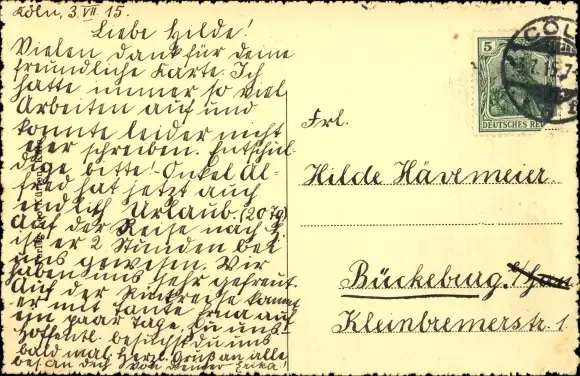 Köln, 3.VII 15.
Liebe Hilde!
Vielen Dank für deine
freundliche Karte. Ich
hatte immer so viel
Arbeiten auf und
konnte leider nicht
eher schreiben. Entschul-
dige bitte! Onkel Al-
fred hat jetzt auch
endlich Urlaub. (20 Tg)
Auf der Reise nach
ist er 2 Stunden bei
uns gewesen. Wir
haben uns sehr gefreut.
Auf der Rückreise kommt
er mit Tante Erna auf
ein paar Tage zu uns.
Hoffentl. besuchst du uns
bald mal. Herzl. Gruß an alle
bes. an Dich von deiner Erika!
5
DEUTSCHES REI
CÖL
Frl.
Hilde Hävemeier
Bückeburg.
Kleinbremerstr. 1